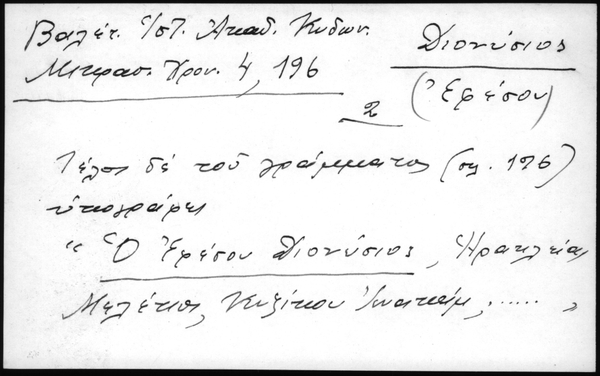 Βαλέτ. Ἱστ. Ἀκαδ. Κυδων.
Μικρασ. Χρον. 4, 196
Διονύσιος
(Ἐφέσου)
2
Τέλος δὲ τοῦ γράμματος (σημ. 196)
ὑπογράφει
" Ὁ Ἐφέσου Διονύσιος, Ἡρακλείας
Μελέτιος, Κυζίκου Ἰωακείμ, ..... "